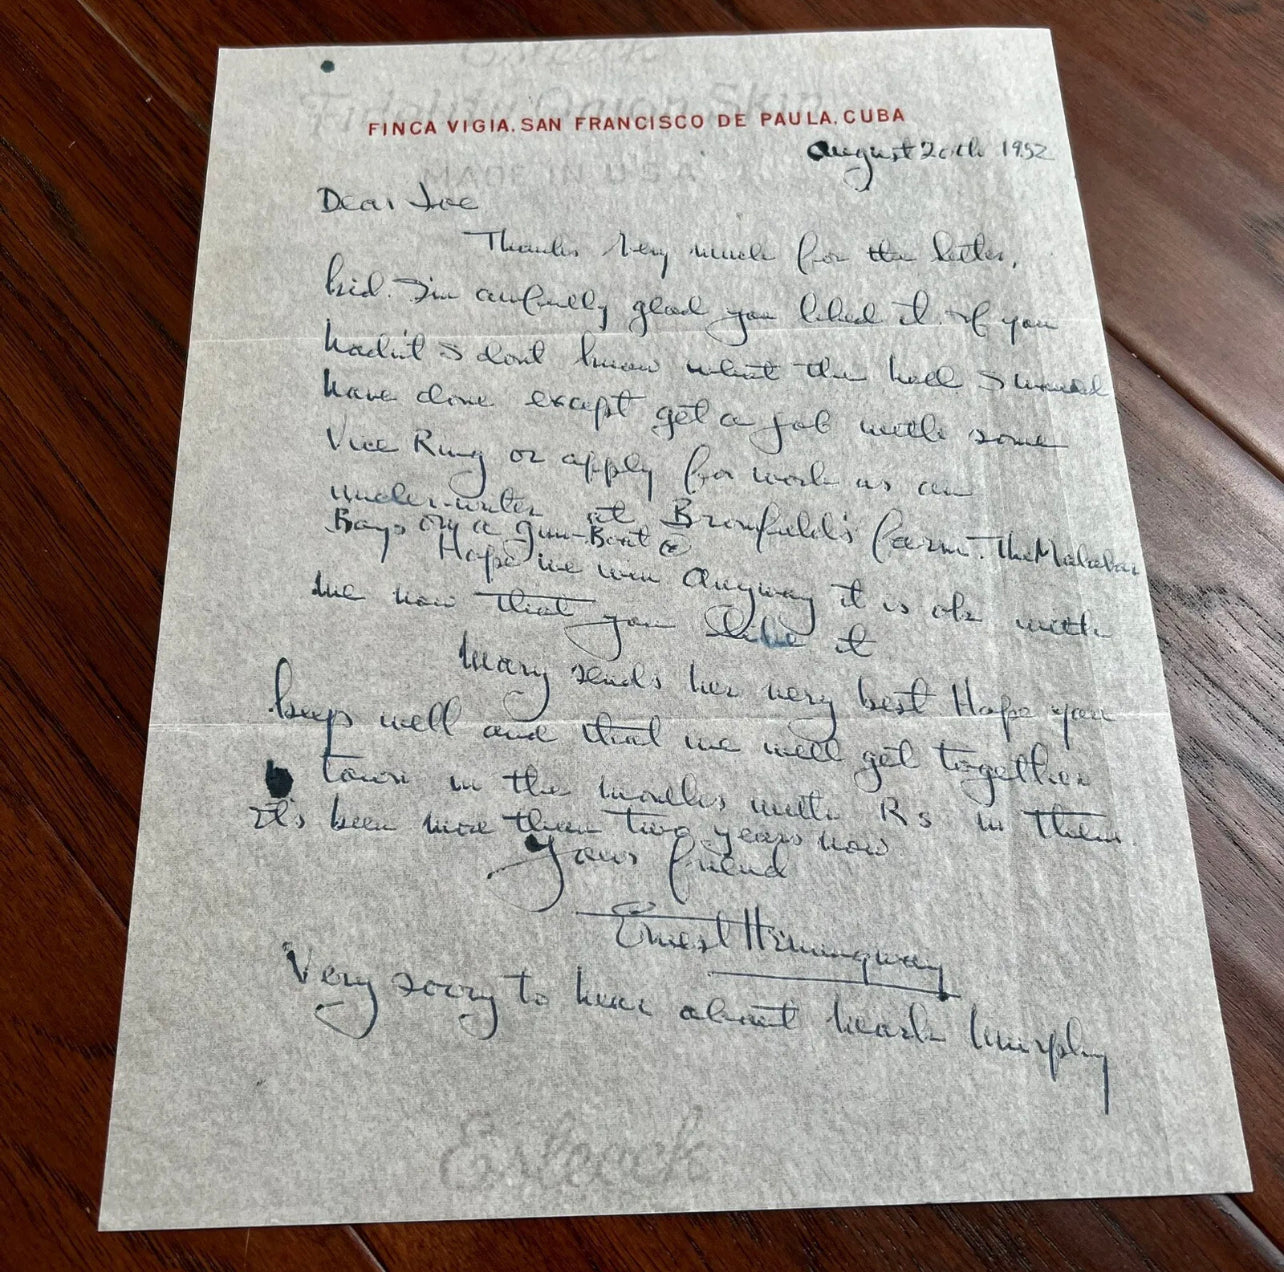 Eslcock
Fidelity Onion Skin
FINCA VIGIA, SAN FRANCISCO DE PAULA, CUBA
MADE IN U.S.A.
August 20th 1952
Dear Joe
Thanks very much for the letter,
kid. I'm awfully glad you liked it. If you
hadn't I dont know what the hell I would
have done except get a job with some
Vice Ring or apply for work as an
under-writer at Bromfield's farm. The Malabar
Boys on a Gun-Boat
Hope we win Anyway it is ok with
me now that you like it
Mary sends her very best Hope you
keep well and that we will get together
town in the months with Rs in them.
It's been more than two years now
Your friend
Ernest Hemingway
Very sorry to hear about Mark Murphy
Eslcock